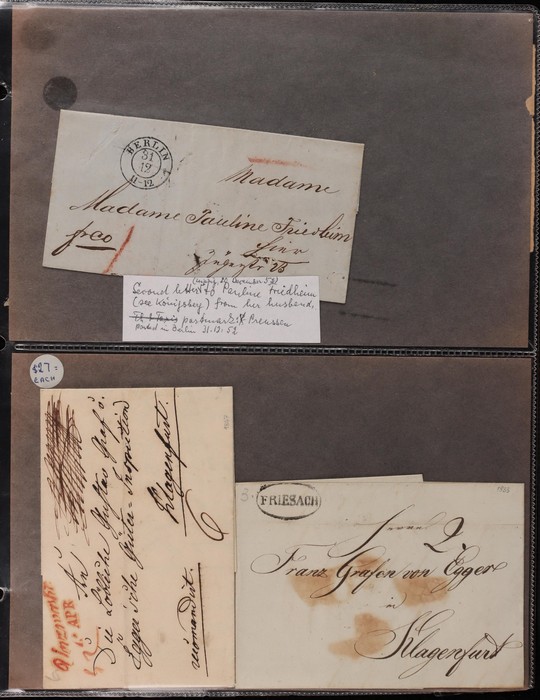 BERLIN
31
12
11-12
Madame
Madame Pauline Friedheim
frco
hier
25
Second letter to Pauline Friedheim
(see Königsberg) from her husband,
postmark Preussen
Posted in Berlin 31.12.52
$27=
EACH
An
Die Löbliche Gustav Graf v.
Egger'sche Güter-Inspection
in
Klagenfurt.
recomandirt.
6
APR
3.
FRIESACH
2
Franz Grafen von Egger
in
Klagenfurt